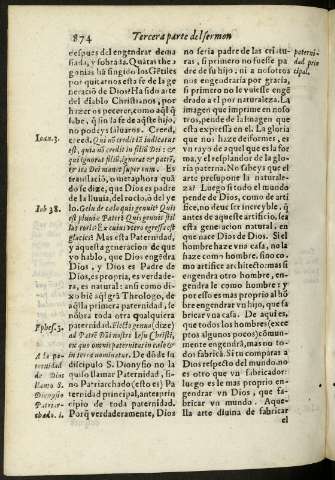 874
Tercera parte del sermon
despues del engendrar dema
siada, y sobrada. Quátas theo
gonias há fingido los Gétiles
por quitarnos esta fe de la ge
neració de Dios? Ha sido arte
del diablo Christianos, por
hazer os perecer, como aql q̃
sabe, q̃ sin la fe de aqste hijo,
no podeys saluaros. Creed,
creed. Qui nõ credit iã iudicatus
est, quia nõ credit in filiũ Dei: &
qui ignorat filiũ, ignorat & patrẽ,
& ira Dei manet super eum. Es
translació, o metaphora quá
do se dize, que Dios es padre
de la lluuia, del rocío, ò del ye
lo. Gelu de cælo quis genuit? Quis
est pluuiæ Pater? Quis genuit stil
las roris? Ex cuius vtero egressa est
glacies? Mas esta Paternidad,
y aquesta generacion de que
yo hablo, que Dios engẽdra
Dios, y Dios es Padre de
Dios, es propria, es verdade-
ra, es natural: ansi como di-
xo aql gra Theologo, de
aqlla primera paternidad, se
nõbra toda otra qualquiera
paternidad. Flecto genua (dize)
ad Patrẽ Dñi nostri Iesu Christi,
ex quo omnis paternitas in cælo &
in terra nominatur. De dõde su
discipulo S. Dionysio no la
quiso llamar Paternidad, si-
no Patriarchado (esto es) Pa
ternidad principal, ante prin
cipio de toda paternidad.
Porq̃ verdaderamente, Dios
Ioan. 3.
Iob 38.
Ephes. 3.
A la pa-
ternidad
de Dios
llama S.
Dionysio
Patriar-
chado. i.
no seria padre de las criatu-
ras, si primero no fuesse pa
dre de su hijo; ni a nosotros
nos engendraria por gracia,
si primero no le vuiesse engẽ
drado a el por naturaleza. La
imagen que imprime en noso
tros, pende de la Imagen que
esta expressa en el. La gloria
que nos haze deiformes, es
vn rayo de aquel que es la for
ma, y el resplandor de la glo
ria paterna. No sabeys que el
arte presupone la naturale-
za? Luego si todo el mundo
pende de Dios, como de arti
fice, no deue ser increyble, q̃
antes de aqueste artificio, sea
esta generacion natural, en
que nace Dios de Dios. Si el
hombre haze vna casa, no la
haze como hombre, sino co-
mo artifice architecto: mas si
engendra otro hombre, en-
gendra le como hombre: y
por esso es mas proprio al hõ
bre engendrar vn hijo, que fa
bricar vna casa. De aqui es,
que todos los hombres (exce
ptos algunos pocos) comũ-
mente engendrã, mas no to-
dos fabricã. Si tu comparas a
Dios respecto del mundo, no
es otro que vn fabricador:
luego es le mas proprio en-
gendrar vn Dios, que fa-
bricar vn mundo. Aque-
lla arte diuina de fabricar
el
paterni-
dad prin
cipal.